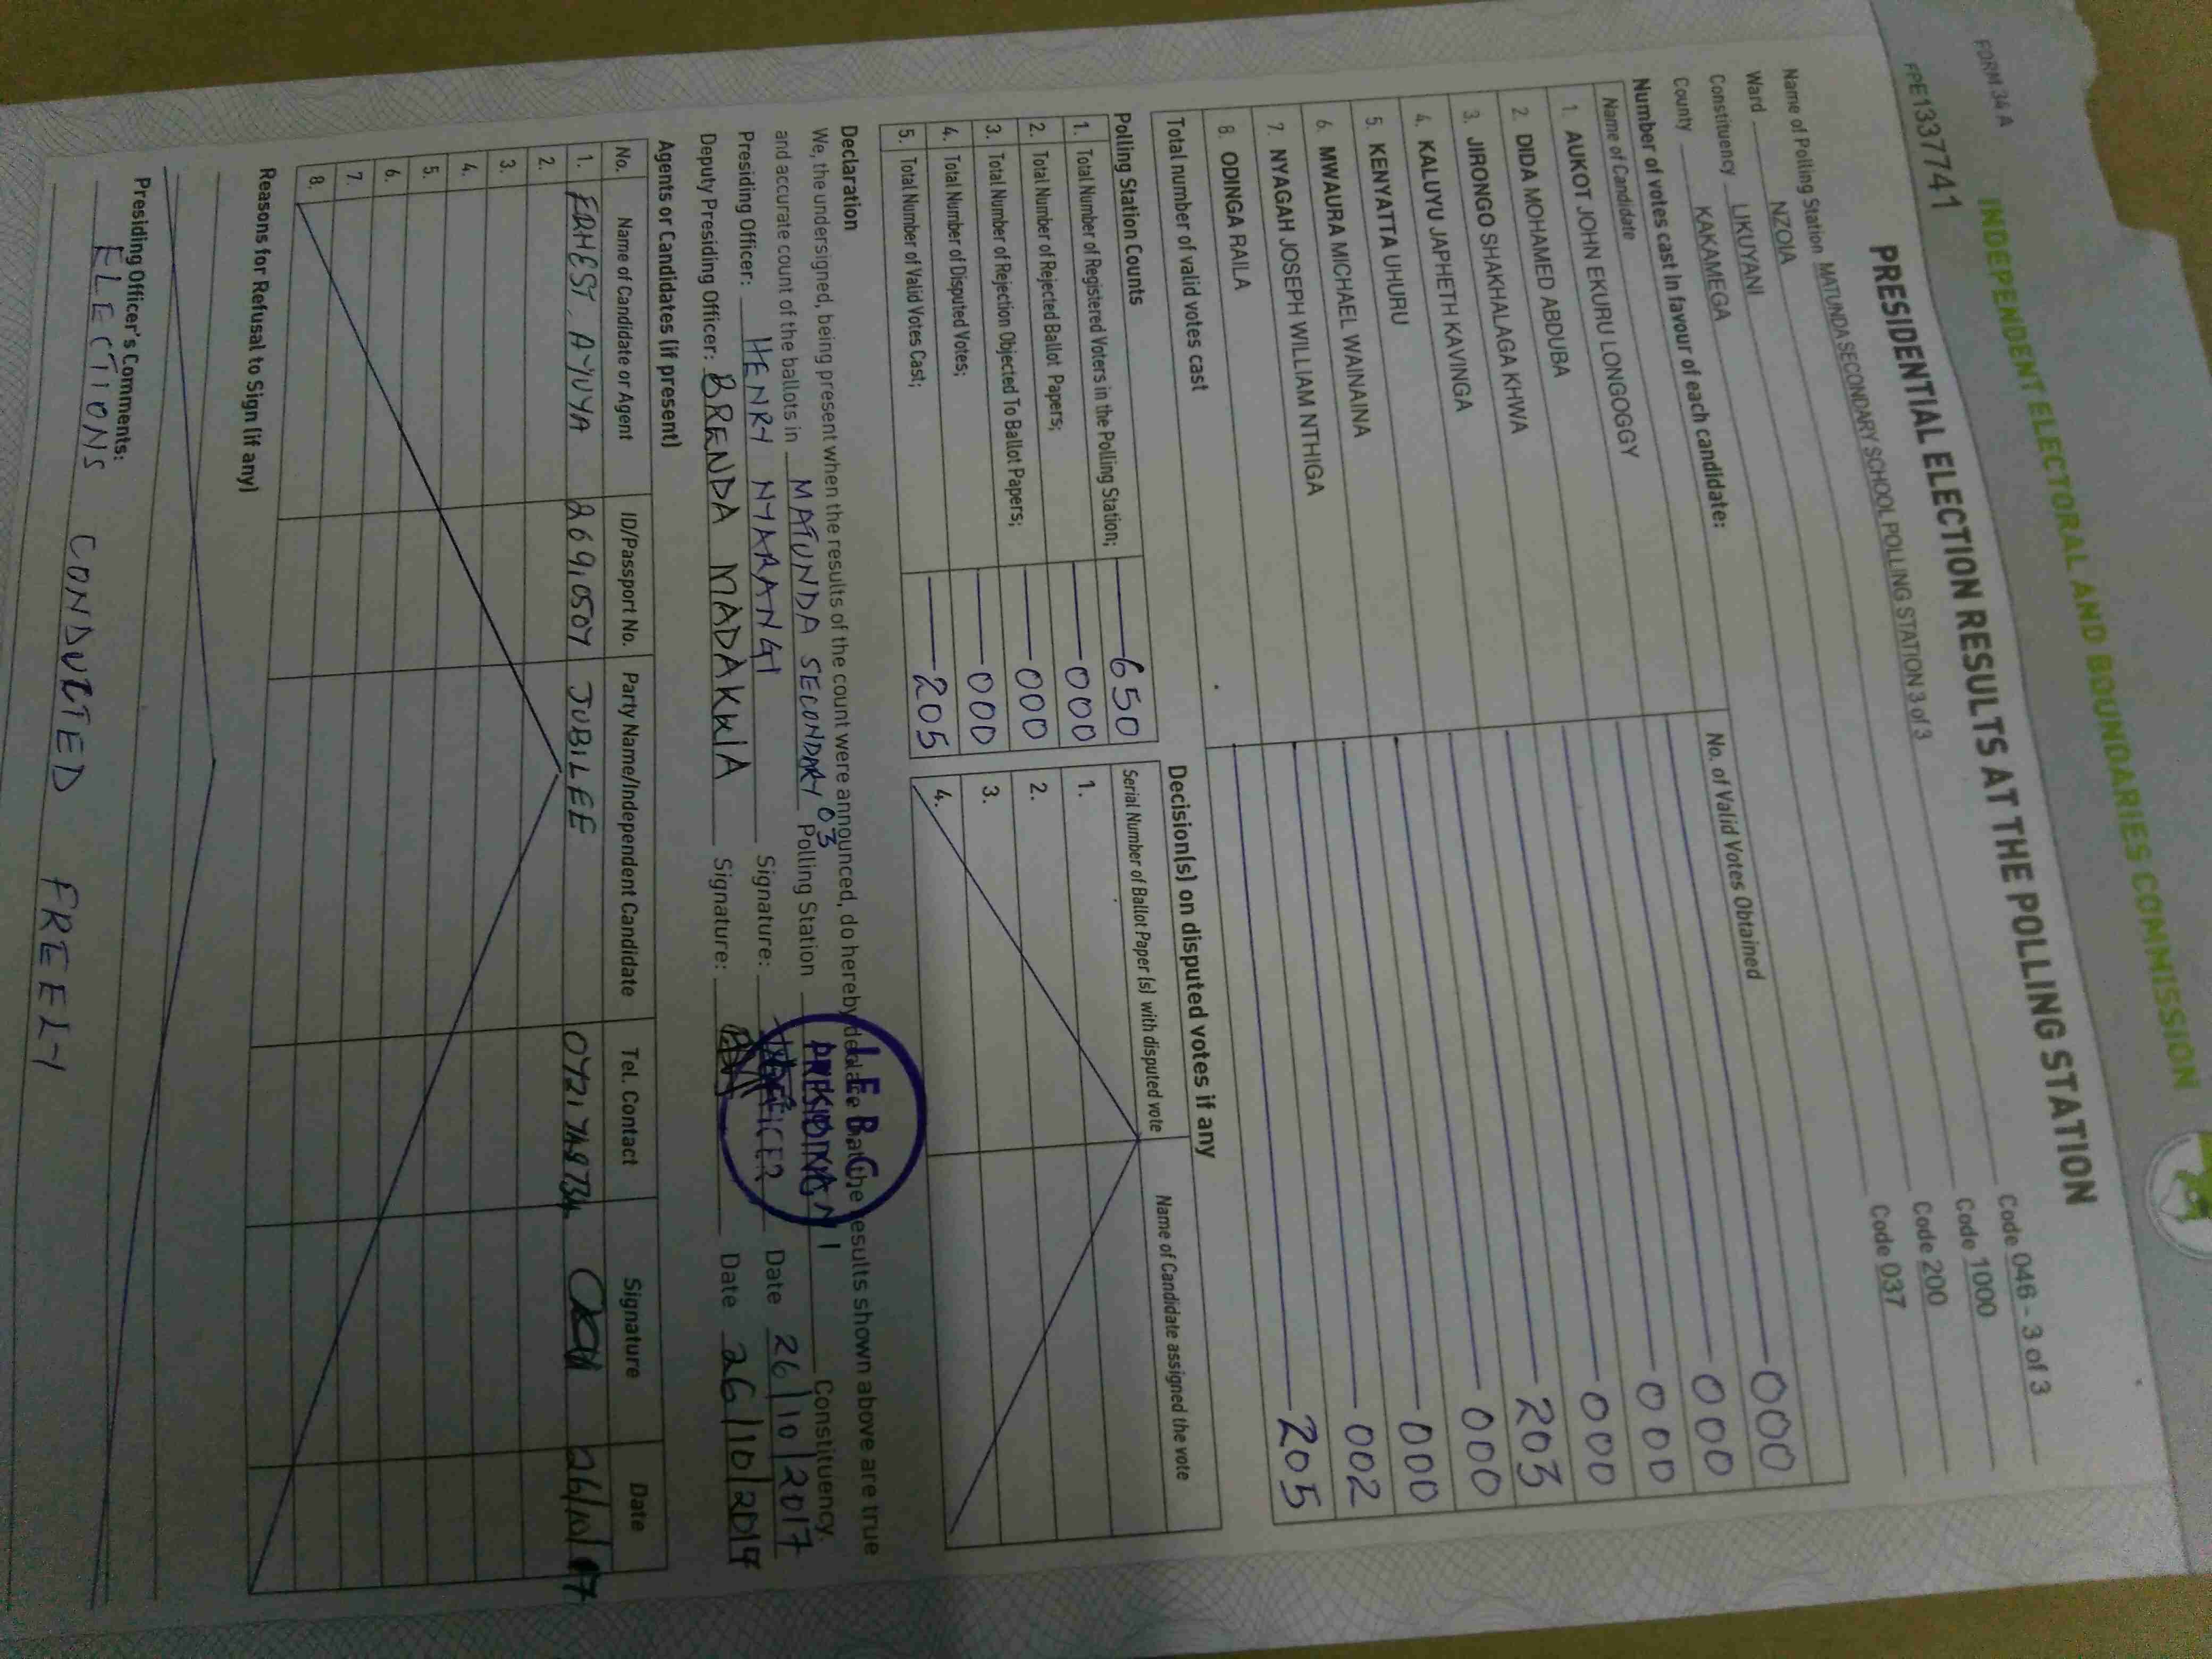 FORM 34 A
INDEPENDENT ELECTORAL AND BOUNDARIES COMMISSION
FPE1337741
PRESIDENTIAL ELECTION RESULTS AT THE POLLING STATION
Name of Polling Station MATUNDA SECONDARY SCHOOL POLLING STATION 3 of 3 Code 046 - 3 of 3
Ward NZOIA Code 1000
Constituency LIKUYANI Code 200
County KAKAMEGA Code 037
Number of votes cast in favour of each candidate:
Name of Candidate No. of Valid Votes Obtained
1. AUKOT JOHN EKURU LONGOGGY 000
2. DIDA MOHAMED ABDUBA 000
3. JIRONGO SHAKHALAGA KHWA 000
4. KALUYU JAPHETH KAVINGA 000
5. KENYATTA UHURU 203
6. MWAURA MICHAEL WAINAINA 000
7. NYAGAH JOSEPH WILLIAM NTHIGA 000
8. ODINGA RAILA 002
Total number of valid votes cast 205
Polling Station Counts
1. Total Number of Registered Voters in the Polling Station; 650
2. Total Number of Rejected Ballot Papers; 000
3. Total Number of Rejection Objected To Ballot Papers; 000
4. Total Number of Disputed Votes; 000
5. Total Number of Valid Votes Cast; 205
Decision(s) on disputed votes if any
Serial Number of Ballot Paper (s) with disputed vote Name of Candidate assigned the vote
1.
2.
3.
4.
Declaration
We, the undersigned, being present when the results of the count were announced, do hereby declare that the results shown above are true
and accurate count of the ballots in MATUNDA SECONDARY 03 Polling Station Constituency.
Presiding Officer: HENRY NYARANGI Signature: Date 26/10/2017
Deputy Presiding Officer: BRENDA MADAKWA Signature: Date 26/10/2017
I E B C
PRESIDING
OFFICER
Agents or Candidates (if present)
No. Name of Candidate or Agent ID/Passport No. Party Name/Independent Candidate Tel. Contact Signature Date
1. ERNEST AYUYA JUBILEE 26/10/17
2.
3.
4.
5.
6.
7.
8.
Reasons for Refusal to Sign (if any)
Presiding Officer's Comments:
ELECTIONS CONDUCTED FREELY